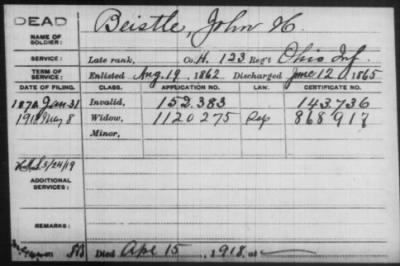 DEAD
Beistle, John H.
NAME OF
SOLDIER:
SERVICE: Late rank, Co. H, 123 Reg't Ohio Inf.
TERM OF
SERVICE: Enlisted Aug. 19, 1862. Discharged June 12, 1865
DATE OF FILING. CLASS. APPLICATION NO. LAW. CERTIFICATE NO.
1872 Jan 31 Invalid, 152.383 143.736
1918 May 8 Widow, 1120275 868917
Minor,
5/24/19
ADDITIONAL
SERVICES:
REMARKS:
Died Apr 15, 1918, at